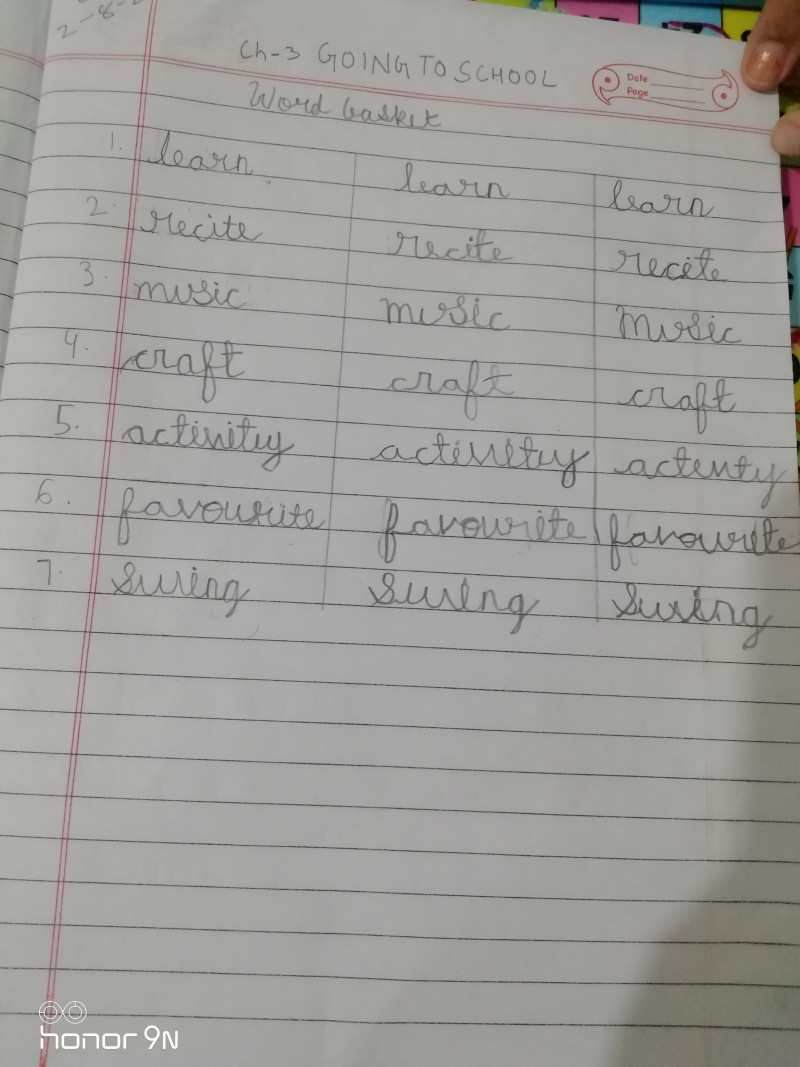 2-8-2
Ch-3 GOING TO SCHOOL
Date
Page
Word basket
1. learn learn learn
2. recite recite recite
3. music music music
4. craft craft craft
5. activity activity activty
6. favourite favourite favourite
7. Swing Swing Swing
honor 9N